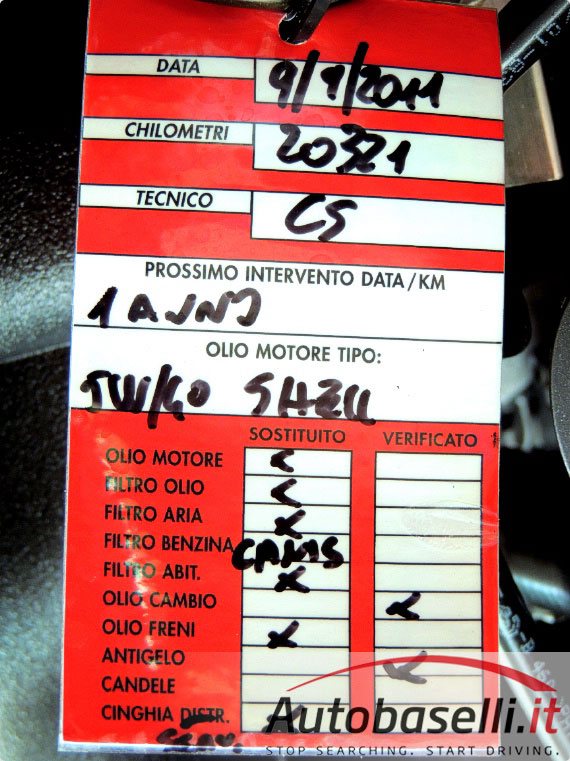 DATA 9/9/2011
CHILOMETRI 20321
TECNICO CS
PROSSIMO INTERVENTO DATA/KM
1 ANNO
OLIO MOTORE TIPO:
5W/40 SHELL
SOSTITUITO VERIFICATO
OLIO MOTORE X
FILTRO OLIO X
FILTRO ARIA X
FILTRO BENZINA
FILTRO ABIT. X
OLIO CAMBIO X
OLIO FRENI X
ANTIGELO X
CANDELE
CINGHIA DISTR.
SERV.
Autobaselli.it
STOP SEARCHING. START DRIVING.